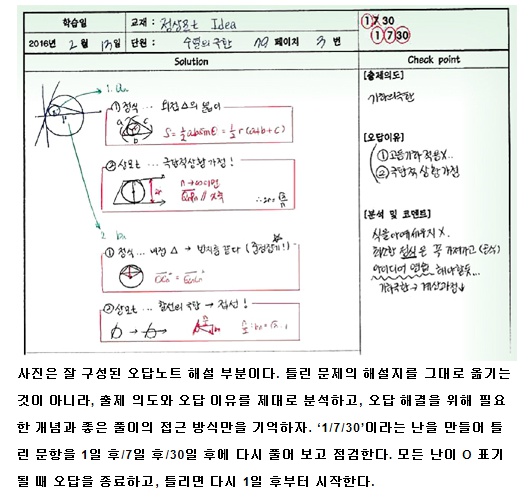 학습일
교재 : 정상모트 Idea
1 7 30
1 7 30
2016년 2 월 13일
단원 : 수열의 극한 79 페이지 3 번
Solution
Check point
1. an
① 정석 ... 외접 △의 넓이
S = ½absinθ = ½r(a+b+c)
② 상모트 ... 극단적상황가정!
n→∞이면
2. bn
① 정석 ... 내접 △ →
② 상모트 ... 할선의 극한 → 접선!
[출제의도]
기하의극한
[오답이유]
① 고등기하 적용X..
② 극단적 상황가정
[분석 및 코멘트]
식을 아예 세우지 X.
아이디어 연습
기하극한 → 계산과정↓
사진은 잘 구성된 오답노트 해설 부분이다. 틀린 문제의 해설지를 그대로 옮기는
것이 아니라, 출제 의도와 오답 이유를 제대로 분석하고, 오답 해결을 위해 필요
한 개념과 좋은 풀이의 접근 방식만을 기억하자. ‘1/7/30’이라는 난을 만들어 틀
린 문항을 1일 후/7일 후/30일 후에 다시 풀어 보고 점검한다. 모든 난이 O 표기
될 때 오답을 종료하고, 틀리면 다시 1일 후부터 시작한다.